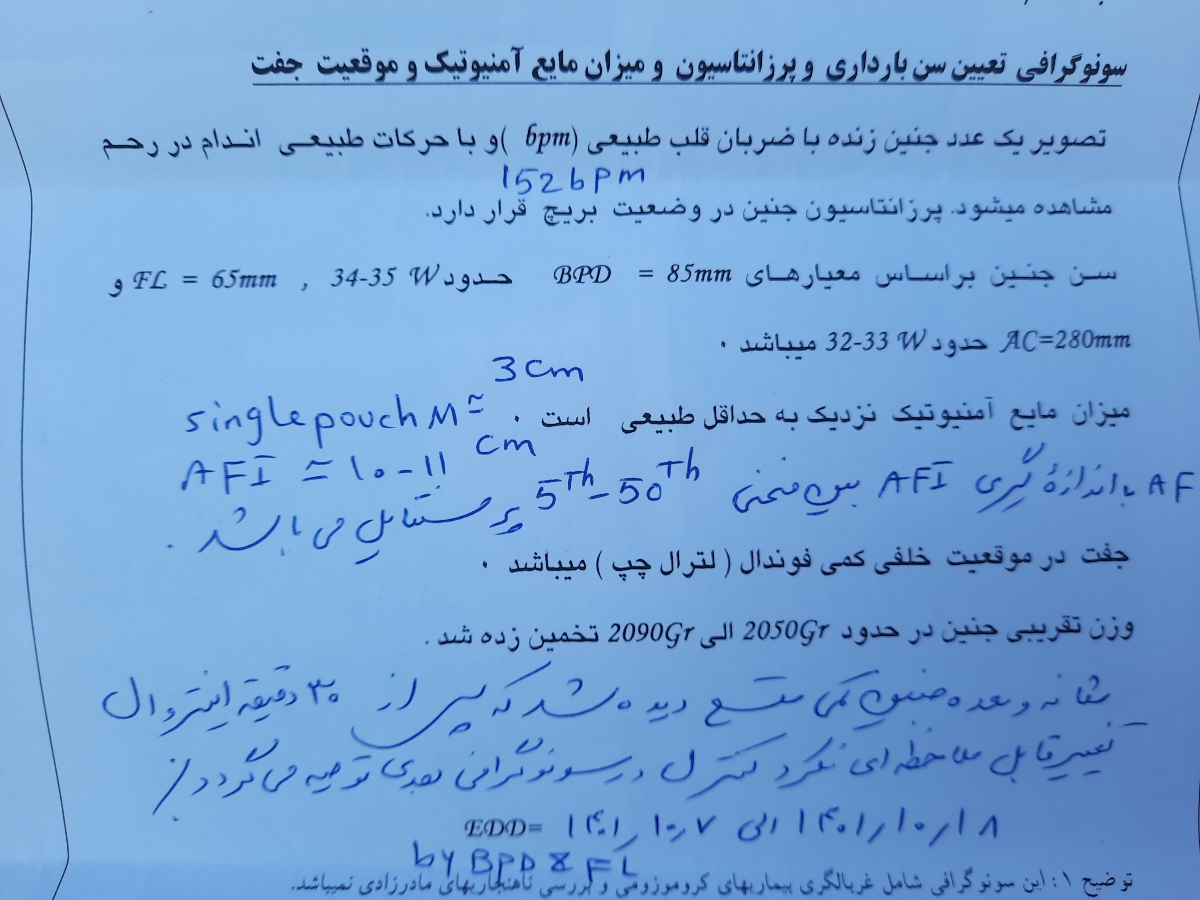 سونوگرافی تعیین سن بارداری و پرزانتاسیون و میزان مایع آمنیوتیک و موقعیت جفت
تصویر یک عدد جنین زنده با ضربان قلب طبیعی (bpm ) و با حرکات طبیعی اندام در رحم
152 bpm
مشاهده میشود. پرزانتاسیون جنین در وضعیت بریچ قرار دارد.
سن جنین براساس معیارهای BPD = 85mm حدود 34-35 W , FL = 65mm و
AC=280mm حدود 32-33 W میباشد ۰
3 cm
میزان مایع آمنیوتیک نزدیک به حداقل طبیعی است ۰ single pouch M ≃
AFI ≃ ۱۰-۱۱ cm
AF با اندازهٔ گیری AFI بین منحنی 5th-50th
پرسنتایل می باشد .
جفت در موقعیت خلفی کمی فوندال ( لترال چپ ) میباشد ۰
وزن تقریبی جنین در حدود 2050Gr الی 2090Gr تخمین زده شد .
مثانه و معده جنین کمی متسع دیده شد که پس از ۳۰ دقیقه اینتروال
تغییر قابل ملاحظه ای نکرد کنترل در سونوگرافی بعدی توصیه می گردد
EDD= ۱۴۰۱٫۱۰٫۷ الی ۱۴۰۱٫۱۰٫۱۸
by BPD & FL
توضیح ۱ : این سونوگرافی شامل غربالگری بیماریهای کروموزومی و بررسی ناهنجاریهای مادرزادی نمیباشد.